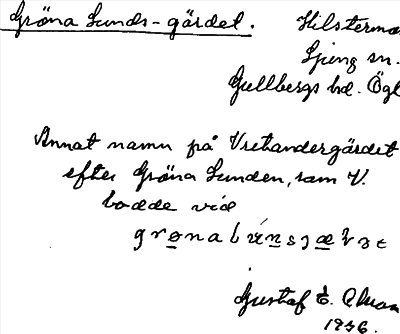 Gröna Lunds-gärdet. Hilsterma
Ljung sn.
Gullbergs hd. Ögl
Annat namn på Vretandergärdet
efter Gröna Lunden, som V.
bodde vid
Gustaf E.
1946.